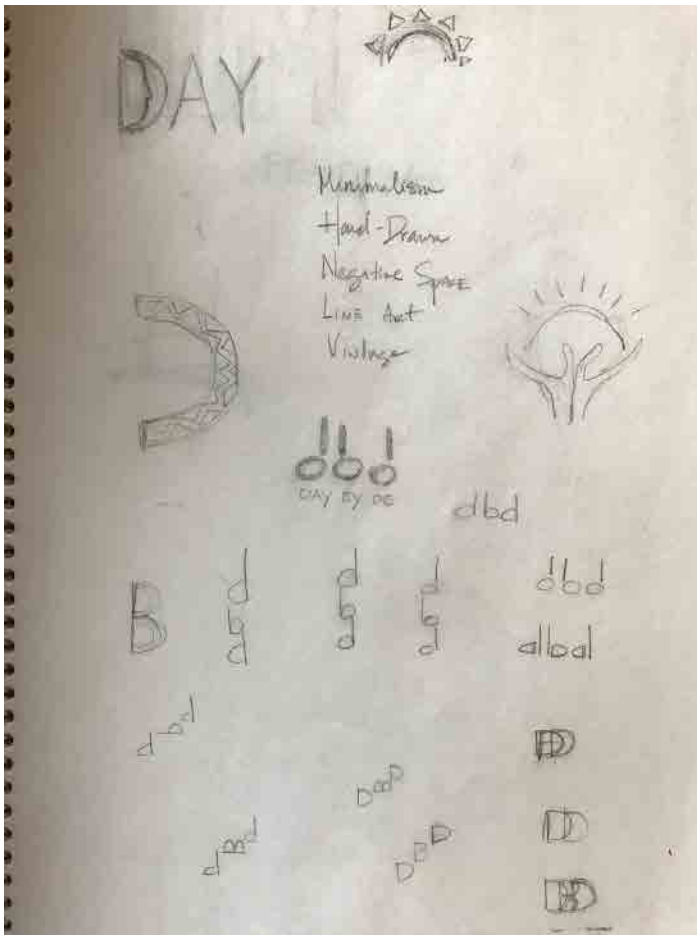 DAY
Minimalism
Hand-Drawn
Negative Space
Line Art
Vintage
dbd
DAY BY DE
dbd
B
d
b
d
d
b
d
d
b
d
dbd
dbd
dbd
DBD
dBd
DBD
DD
DD
DBD